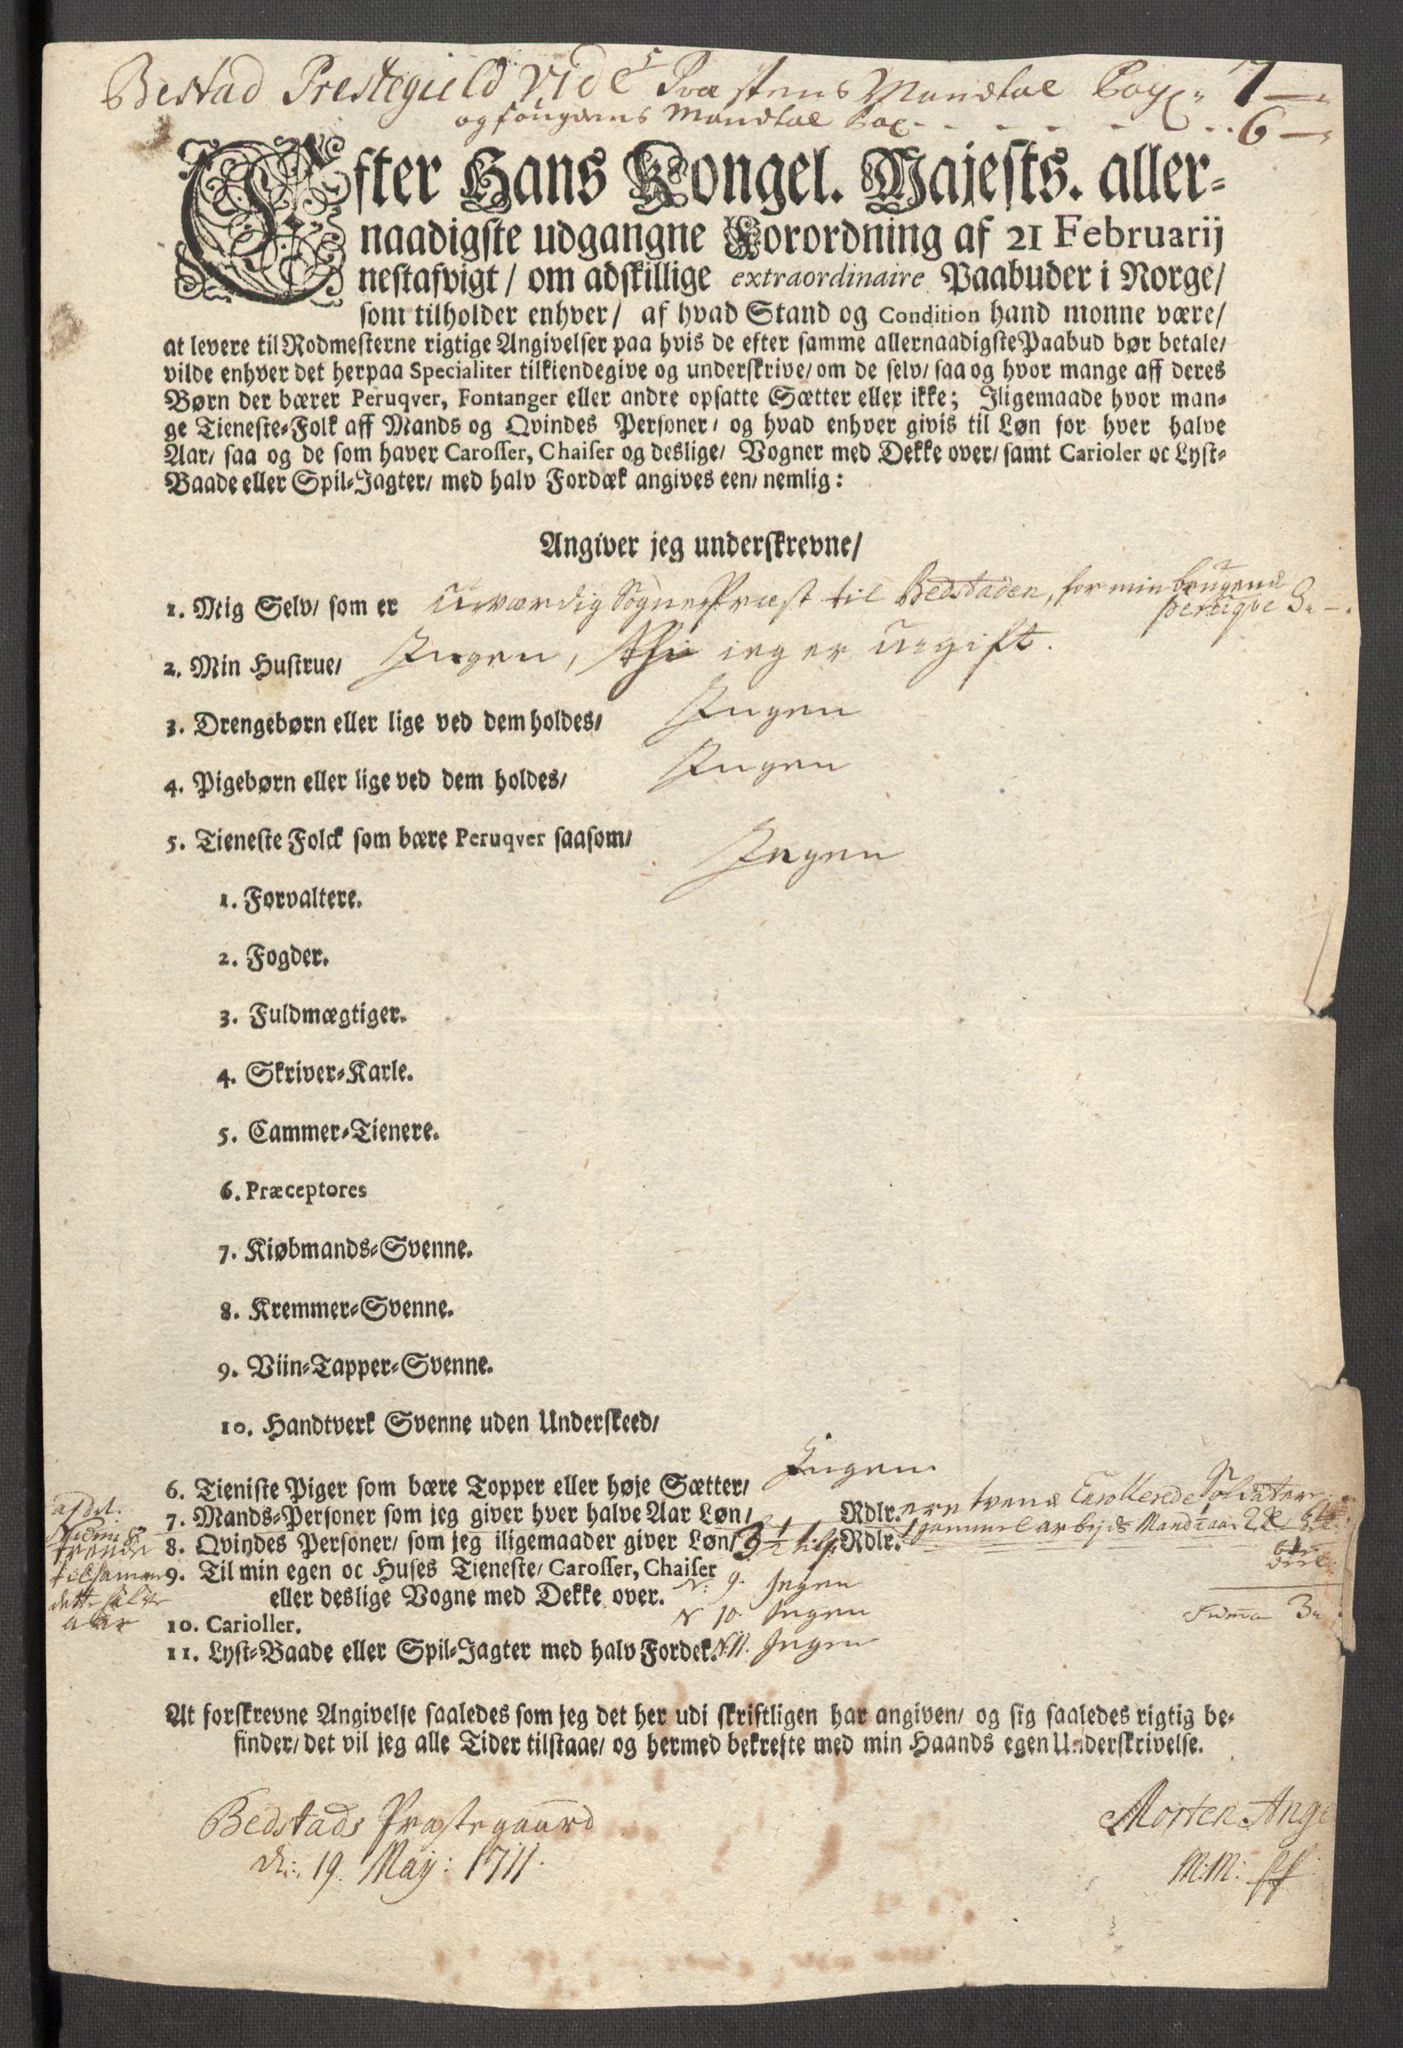 Bestad Prestegield vide Præstens Mandtal Pag: 7 —
og fougdens Mandtal Pag. - - - - 6 —
Efter Hans Kongel. Majests. aller-
naadigste udgangne Forordning af 21 Februarij
nestafvigt/ om adskillige extraordinaire Paabuder i Norge/
som tilholder enhver/ af hvad Stand og Condition hand monne være/
at levere til Rodmesterne rigtige Angivelser paa hvis de efter samme allernaadigste Paabud bør betale/
vilde enhver det herpaa Specialiter tilkiendegive og underskrive/ om de selv/ saa og hvor mange aff deres
Børn der bærer Peruqver, Fontanger eller andre opsatte Sætter eller ikke; Iligemaade hvor man-
ge Tieneste-Folk aff Mands og Qvindes Personer/ og hvad enhver givis til Løn for hver halve
Aar/ saa og de som haver Carosser, Chaiser og deslige/ Vogner med Dekke over/ samt Carioler oc Lyst-
Baade eller Spil-Jagter/ med halv Fordæk angives een/ nemlig:
Angiver jeg underskrevne/
1. Mig Selv/ som er Uværdig Sogne Præst til Bedstaden, for min brugende perruqve 3
2. Min Hustrue/ Ingen, thi ieg er ugift.
3. Drengebørn eller lige ved dem holdes/ Ingen
4. Pigebørn eller lige ved dem holdes/ Ingen
5. Tieneste Folck som bære Peruqver saasom/ Ingen
1. Forvaltere.
2. Fogder.
3. Fuldmægtiger.
4. Skriver-Karle.
5. Cammer-Tienere.
6. Præceptores
7. Kiøbmands-Svenne.
8. Kremmer-Svenne.
9. Viin-Tapper-Svenne.
10. Handtverk Svenne uden Underskeed/
6. Tieniste Piger som bære Topper eller høje Sætter/ Ingen
7. Mands-Personer som jeg giver hver halve Aar Løn/ Rdlr. ere tvende Enrollerede Soldater
8. Qvindes Personer/ som jeg iligemaader giver Løn/ Rdlr. gammel arbejds Mand
9. Til min egen oc Huses Tieneste/ Carosser, Chaiser
eller deslige Vogne med Dekke over. N: 9. Ingen
10. Carioller. N 10. Ingen Summa 3
11. Lyst-Baade eller Spil-Jagter med halv Fordek. N 11. Ingen
At forskrevne Angivelse saaledes som jeg det her udi skriftligen har angiven/ og sig saaledes rigtig be-
finder/ det vil jeg alle Tider tilstaae/ og hermed bekrefte med min Haands egen Underskrivelse.
Bedstads Præstegaard
d: 19. May: 1711.
Morten Ange
M: M: